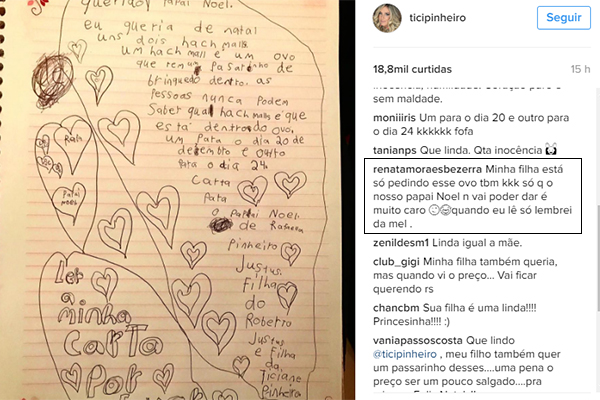 querido Papai Noel.
eu queria de natal
uns dois hachmalls
um hachmall é um ovo
que tem um Pasarinho de
brinquedo dentro. as
Pessoas nunca Podem
Saber qual hachmals é que
está dentrodo ovo,
um Para o dia 20 de
dezembro e outro
Para o dia 24
CARTA
Para
o PaPai Noel
de Rafaela
Pinheiro
Justus.
Filha
do
Roberto
Justus
e Filha
da
Ticiane
Pinheiro
Rafa
Papai
noel
Ler
a
minha
CARTA
Por
ticipinheiro
Seguir
18,8mil curtidas
15 h
sem maldade.
moniiiris Um para o dia 20 e outro para
o dia 24 kkkkkk fofa
tanianps Que linda. Qta inocência 🐼
renatamoraesbezerra Minha filha está
só pedindo esse ovo tbm kkk só q o
nosso papai Noel n vai poder dar é
muito caro 😕😂quando eu lê só lembrei
da mel .
zenildesm1 Linda igual a mãe.
club_gigi Minha filha também queria,
mas quando vi o preço... Vai ficar
querendo rs
chancbm Sua filha é uma linda!!!!
Princesinha!!!! :)
vaniapassoscosta Que lindo
@ticipinheiro , meu filho também quer
um passarinho desses....uma pena o
preço ser um pouco salgado....pra